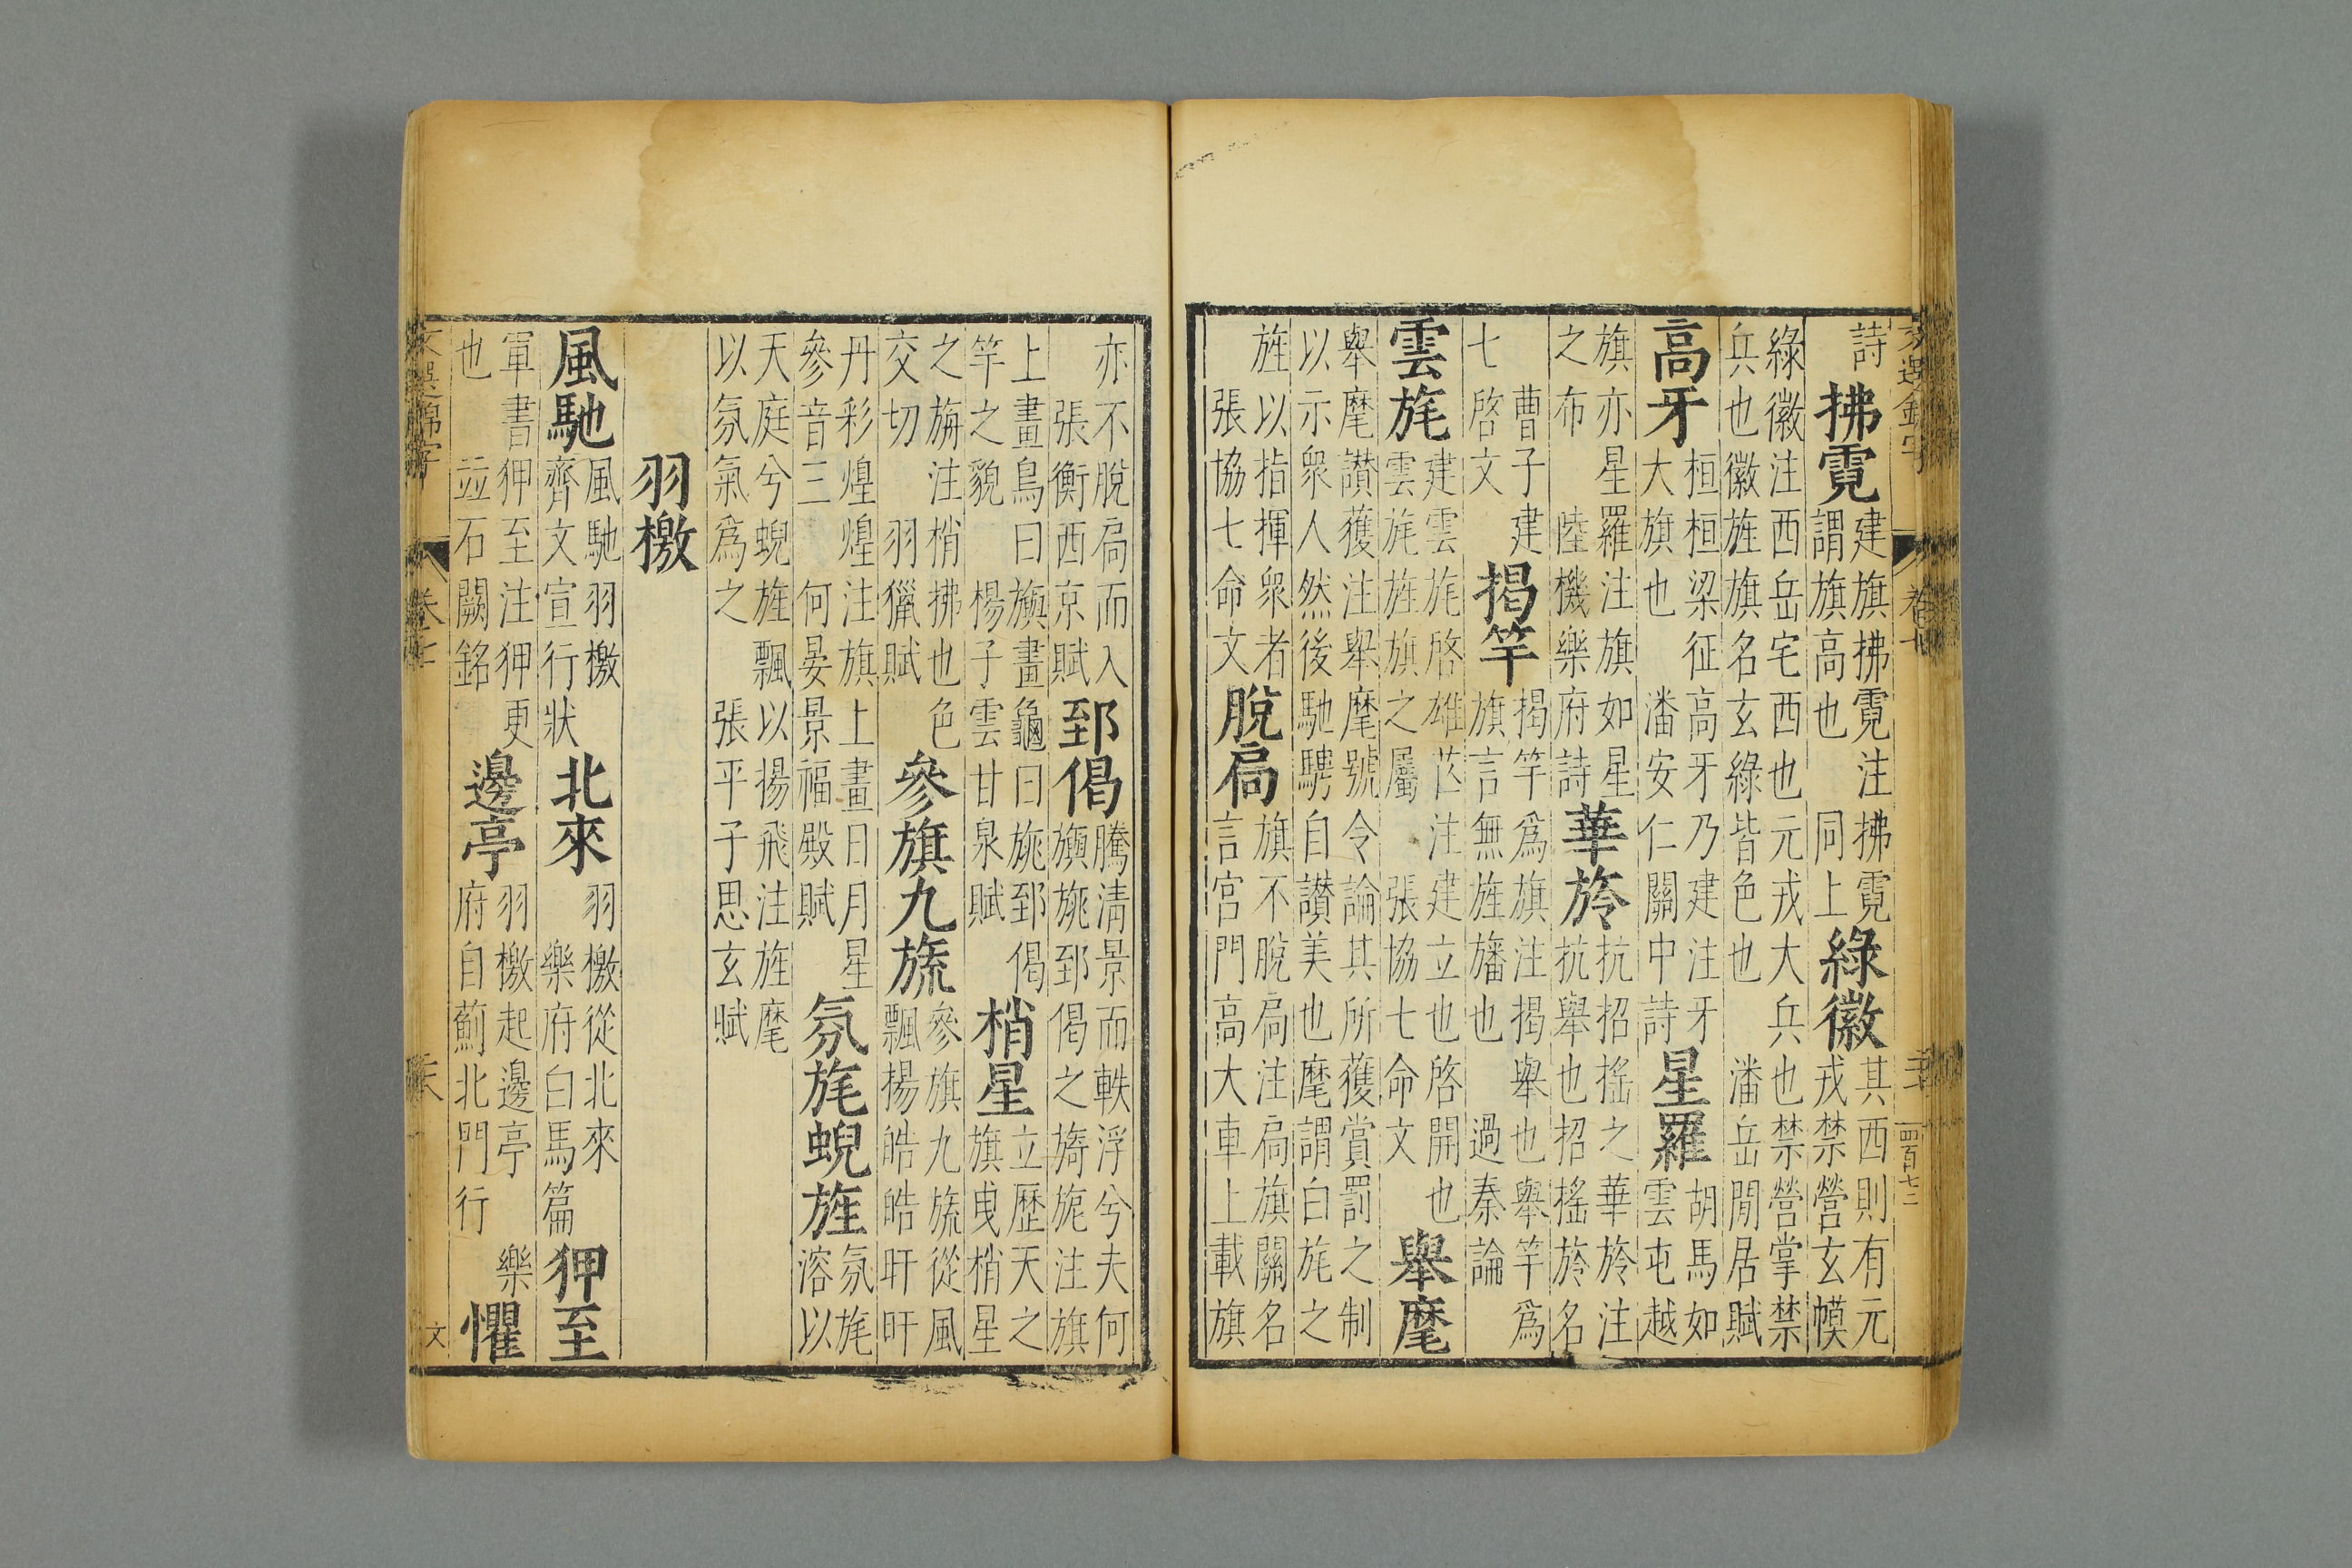 詩
拂霓
建旗拂霓注拂霓
謂旗高也 同上
綠徽
其西則有元
戎禁營玄幙
綠徽注西岳宅西也元戎大兵也禁營掌禁
兵也徽旌旗名玄綠皆色也 潘岳閒居賦
高牙
桓桓梁征高牙乃建注牙
大旗也 潘安仁關中詩
星羅
胡馬如
雲屯越
旗亦星羅注旗如星
之布 陸機樂府詩
華旍
抗招搖之華旍注
抗舉也招搖旍名
曹子建
七啓文
揭竿
揭竿爲旗注揭舉也舉竿爲
旗言無旌旛也 過秦論
雲旄
建雲旄啓雄芒注建立也啓開也
雲旄旌旗之屬 張協七命文
舉麾
舉麾讃獲注舉麾號令論其所獲賞罰之制
以示衆人然後馳騁自讃美也麾謂白旄之
旌以指揮衆者
張協七命文
脫扃
旗不脫扃注扃旗關名
言宮門高大車上載旗
亦不脫扃而入
張衡西京賦
郅偈
騰清景而軼浮兮夫何
旟旐郅偈之旖旎注旗
上畫鳥曰旟畫龜曰旐郅偈
竿之貌 楊子雲甘泉賦
梢星
立歷天之
旗曳梢星
之旃注梢拂也色
交切 羽獵賦
參旗九旒
參旗九旒從風
飄揚皓皓旰旰
丹彩煌煌注旗上畫日月星
參音三 何晏景福殿賦
氛旄蜺旌
氛旄
溶以
天庭兮蜺旌飄以揚飛注旌麾
以氛氣爲之 張平子思玄賦
羽檄
風馳
風馳羽檄
齊文宣行狀
北來
羽檄從北來
樂府白馬篇
狎至
軍書狎至注狎更
也 竝石闕銘
邊亭
羽檄起邊亭 樂
府自薊北門行
懼
卷七
文